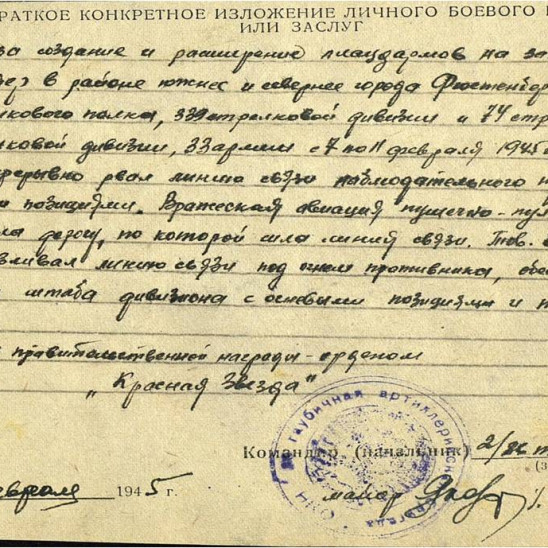 РАТКОЕ КОНКРЕТНОЕ ИЗЛОЖЕНИЕ ЛИЧНОГО БОЕВОГО
ИЛИ ЗАСЛУГ
за создание и расширение плацдармов на за
в районе южнее и севернее города Фюстенбер
лкового полка, 339 стрелковой дивизии и 74 стр
ковой дивизии, 33 армии с 7 по 11 февраля 1945
рерывно рвал линию связи наблюдательного
и позициями. Вражеская авиация пушечно-пул
ла дорогу, по которой шла линия связи. Тов.
вливал линию связи под огнем противника, обе
штаба дивизиона с основыми позициями и
правительственной награды - орденом
„Красная Звезда"
гаубичная артиллерийск
бригада
Командир (начальник) 2/
евраля 1945 г.
майор